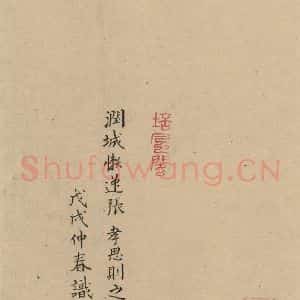 潤城懶逢張孝思則之
戊戌仲春識
Shufawang.CN